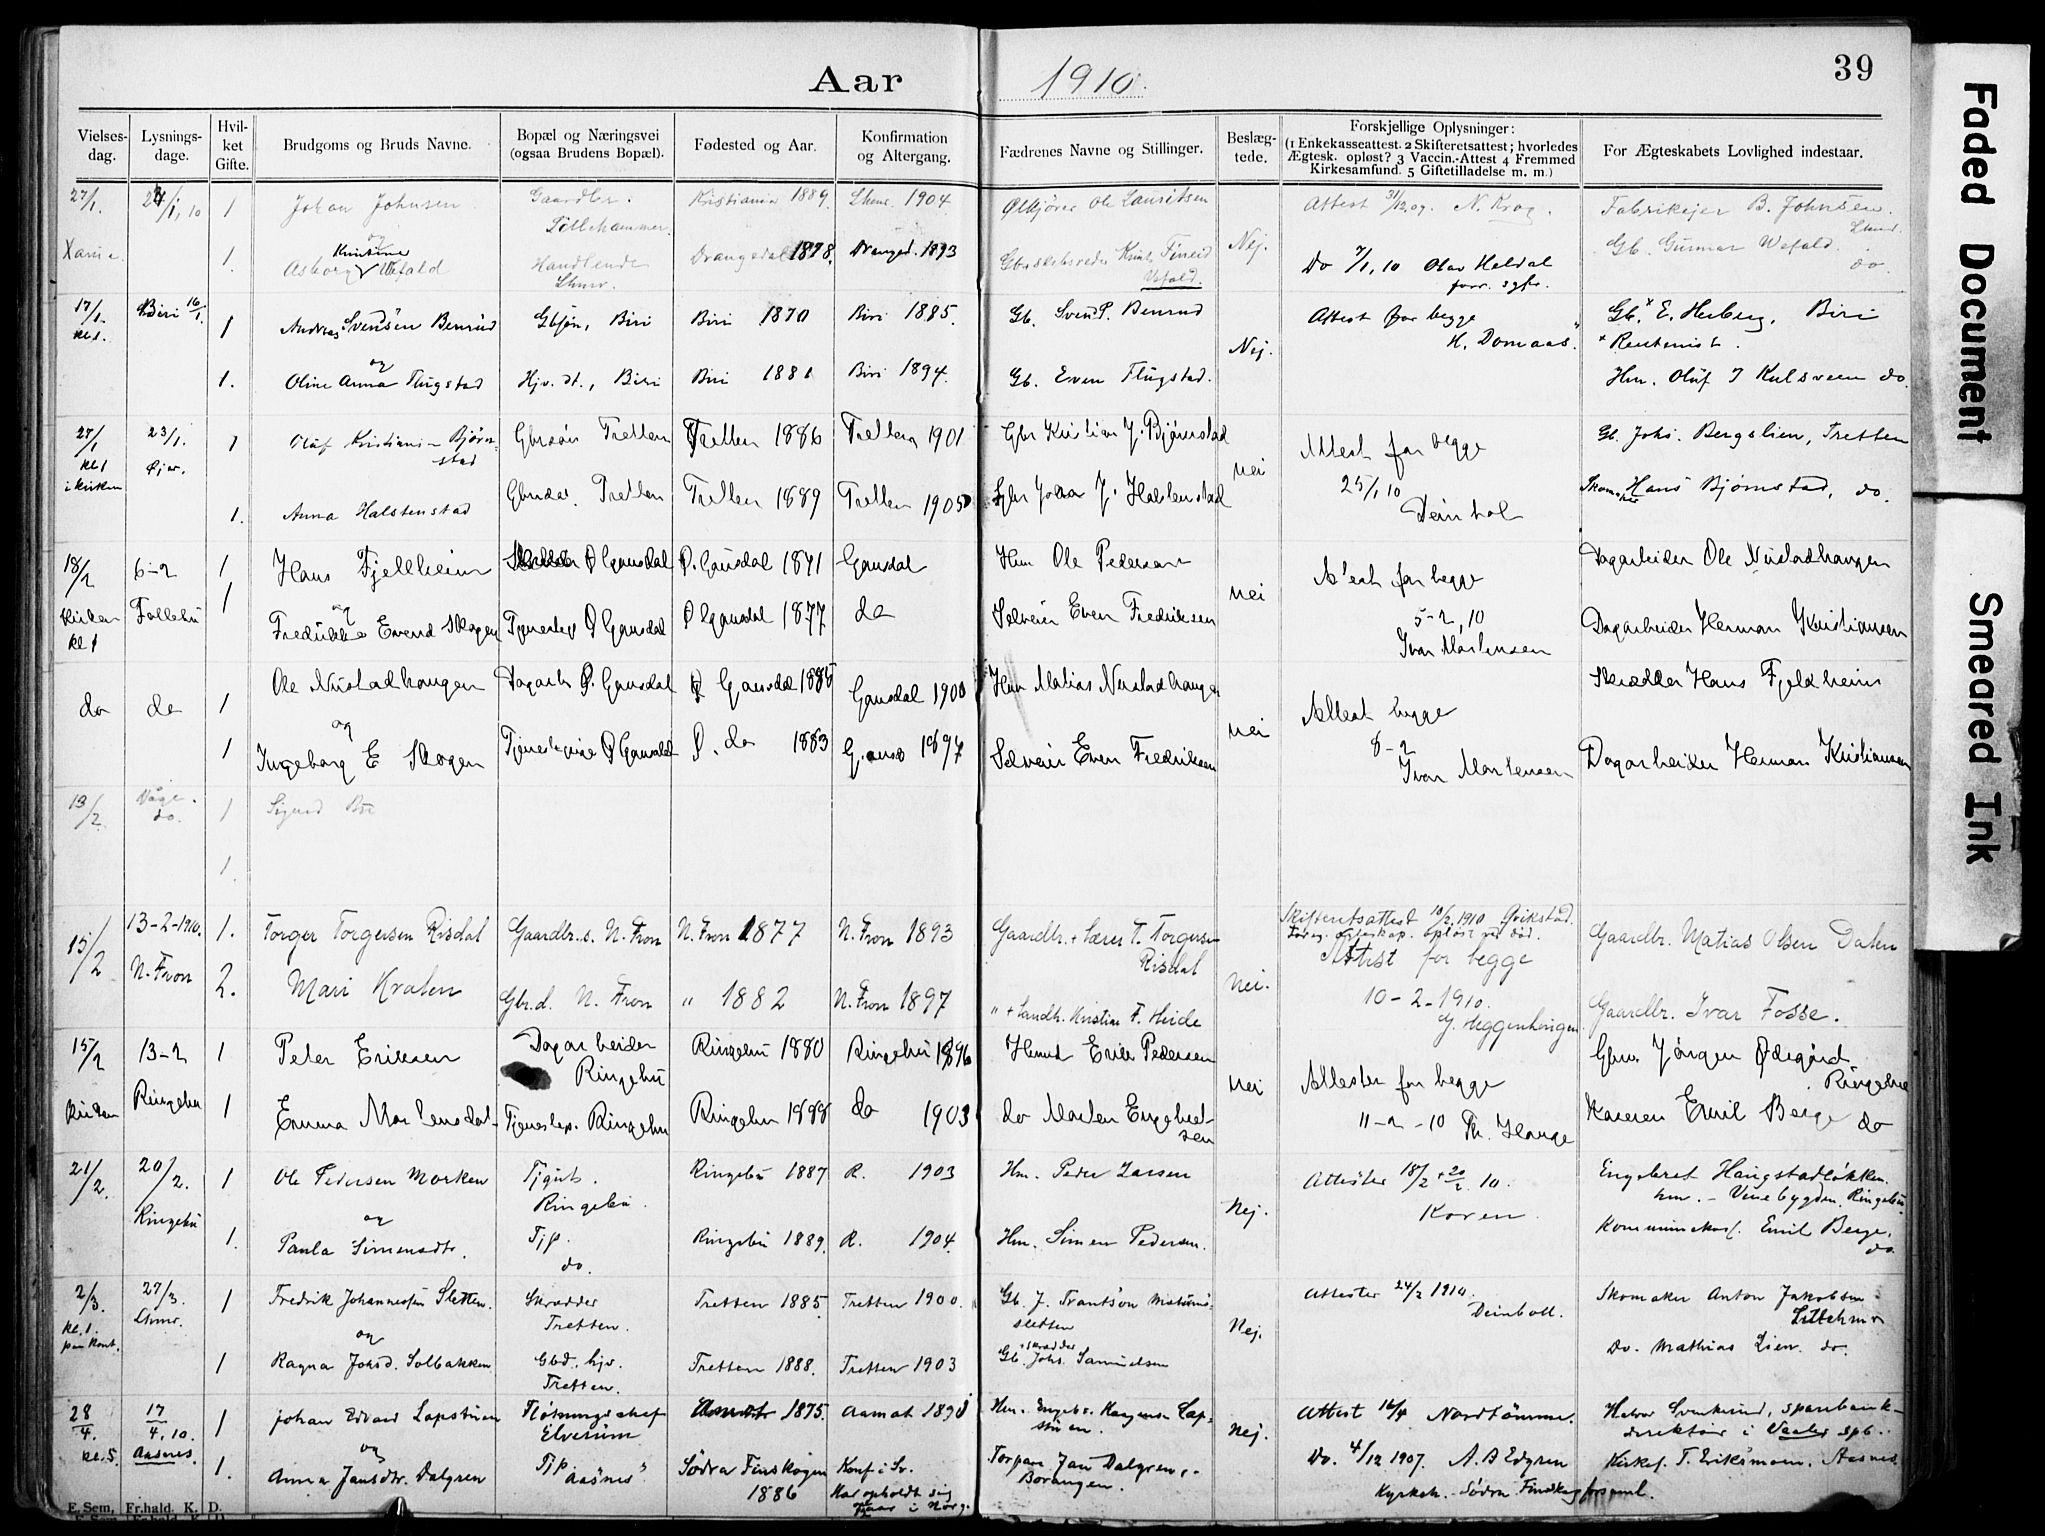 Aar 1910.
39
Vielses-dag.
Lysnings-dage.
Hvil-ket Gifte.
Brudgoms og Bruds Navne.
Bopæl og Næringsvei (ogsaa Brudens Bopæl).
Fødested og Aar.
Konfirmation og Altergang.
Fædrenes Navne og Stillinger.
Beslæg-tede.
Forskjellige Oplysninger: (1 Enkekasseattest. 2 Skifteretsattest; hvorledes Ægtesk. opløst? 3 Vaccin.-Attest 4 Fremmed Kirkesamfund. 5 Giftetilladelse m. m.)
For Ægteskabets Lovlighed indestaar.
27/1. 1 Johan Johnsen Gaardbr. Kristiania 1889. Lhmr. 1904 Ole Lauritsen Attest 31/12 09. N. Krog. Fabrikejer B. Johnsen.
Lillehammer. Lhmr.
og
Kristine
1. Asborg Vefald Handlende Drangedal 1878. Dranged. 1893 Nej. Do 7/1, 10 Olav Heldal Gb. Gunnar Vefald.
Lhmr. Vefald. do.
17/1. Biri 16/1. 1 Andreas Svendsen Benrud Gbsøn, Biri Biri 1870 Biri 1885. Gb. Sven P. Benrud Attest for begge Gb.x E. Herberg, Biri
kl 1. Nej. H. Domaas. x Rentenist.
og
1. Oline Anna Flugstad Hjv. dt., Biri Biri 1881 Biri 1894. Gb. Even Flugstad. Hm. Oluf J Kulsveen do.
27/1 23/1. 1 Oluf Kristians. Bjørn- Gbrsøn Tretten Tretten 1886 Tretten 1901 Gbr Kristian J. Bjørnstad Attest for begge Gb. Johs. Bergslien, Tretten
stad
kl 1 Øjer. nei 25/1 10
i kirken
1. Anna Halstenstad Gbrdat. Tretten Tretten 1889 Tretten 1905 Gbr Johan J. Halstenstad Deinbol Skomaker Hans Bjørnstad, do.
18/2 6-2 1 Hans Fjellheim Skrædder Ø Gausdal Ø. Gausdal 1871 Gausdal Hm Ole Pedersen Attest for begge Dagarbeider Ole Nustadhaugen
nei 5-2, 10
kirken Follebu 1 og
kl 1 Fredrikke Evend Skogen Tjenestep Ø Gausdal Ø Gausdal 1877 do Selveier Even Fredriksen Ivar Mortensen Dagarbeider Herman Kristiansen
do do 1 Ole Nustadhaugen Dagarb Ø. Gausdal Ø Gausdal 1885 Gausdal 1900 Hm Matias Nustadhaugen Attest begge Skrædder Hans Fjeldheim
og nei 8-2
1 Ingeborg E Skogen Tjenestepige Ø Gausdal Ø. do 1883 Gausd 1897 Selveier Even Fredriksen Ivar Mortensen Dagarbeider Herman Kristiansen
13/2 Våge. 1 Sigurd
do.
1.
15/2 13-2-1910. 1. Torger Torgersen Risdal Gaardbr.s. N. Fron N. Fron 1877 N. Fron 1893 Gaardbr. + Lærer T. Torgersen Skifteretsattest 10/2 1910 Gaardbr. Matias Olsen Dalen
Risdal Attest for begge
N. Fron 2. Mari Kraten Gbr.d. N. Fron " 1882 N. Fron 1897 " + Landh. Kristian F. Heide nei. 10-2-1910. Gaardbr. Ivar Fosse.
Heggenhougen
15/2 13-2 1 Peter Eriksen Dagarbeider Ringebu 1880 Ringebu 1896 Hmd Erik Pedersen Attester for begge Gbr. Jørgen Ødegård
Ringebu nei Ringebu
kirken Ringebu 1 Emma Mortensdat- Tjenestep. Ringebu Ringebu 1888 do 1903 do Morten Engebret- 11-2-10 Th. Hauge Kaserer Emil Berge do
sen
21/2. 20/2. 1 Ole Pedersen Morken Tjgut. Ringebu 1887 R. 1903 Hm. Peder Larsen Attester 18/2 + 20/2. 10. Engebret Haugstadløkken.
Ringebu Ringebu. Nej. Koren hm. - Venebygden, Ringebu.
og
1. Paula Simensdtr. Tjp. Ringebu 1889. R. 1904. Hm. Simen Pedersen. Kommunekas. Emil Berge.
do. do.
2/3. 27/3. 1 Fredrik Johannessen Sletten. Skrædder Tretten 1885 Tretten 1900. Gb. J. Attester 24/2 1910. Skomaker Anton Jakobsen
kl. 1. Lhmr. Tretten. sletten Deinboll. Lillehmr
paa kont. og Nej.
1 Ragna Johsd. Solbakken Gbd. hjv. Tretten 1888. Tretten 1903 Gb. + skrædder Johs. Samuelsen Do. Mathias Lien. do.
Tretten.
28/4. 17/4. 10. 1 Johan Edvard Lapstuen Fløtningschef Aamot 1875. Aamot 1890 Hm. Engebr. Lap- Attest 16/4 Nordtømme. Halvor, sparebank-
Elverum stuen. direktør i Vaaler spb.
kl. 5. Aasnes. og Nej.
1. Anna Jansdtr. Dalgren Tjp Aasnes Södra Finskogen Konf i Sv. Torpar. Jan Dalgren, Do. 4/12 1907. A. B Edgren Kirkes. T. Eriksmoen, Aasnes
1886 Har opholdt sig Borangen. Kyrkoh. Södra Finskog församl.
aar i Norg.
E. Sem, Fr.hald. K. D.
Faded Document
Smeared Ink